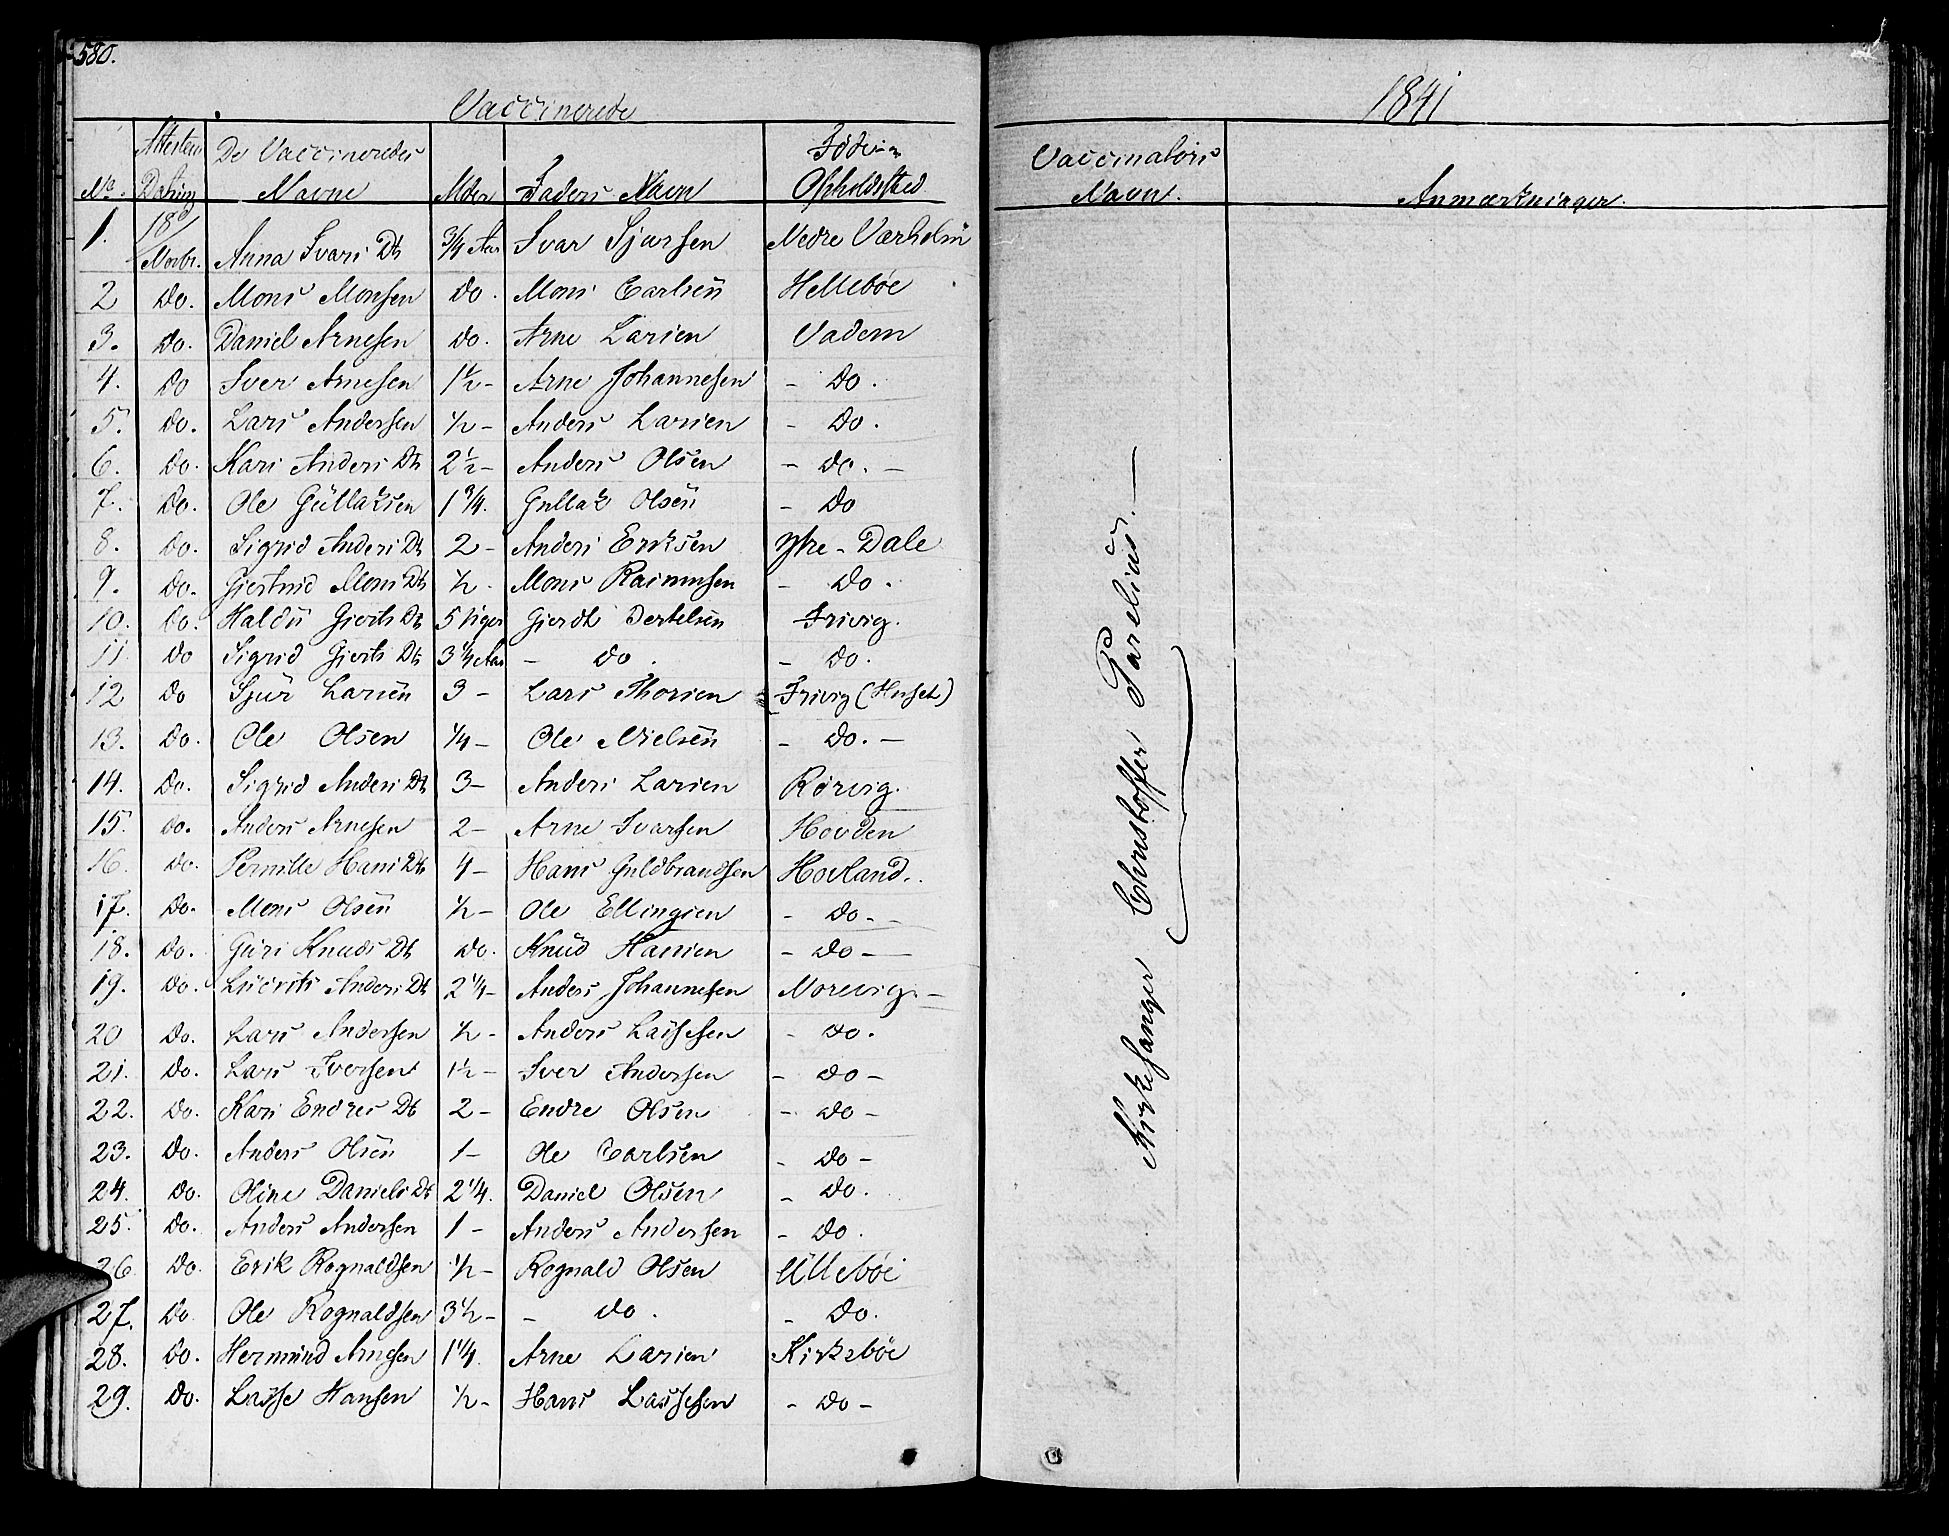 580.
Vaccinerede
No. Attestens Datering De Vaccineredes Navne Alder Faders Navn Føde- Opholdsted
1. 18d/Novbr. Anna Ivars Dt 3/4 Aar Ivar Sjursen Nedre Værholm
2 Do. Mons Monsen do. Mons Carlsen Hellebøe
3. Do. Daniel Arnesen do. Arne Larsen Vadem
4. Do Iver Arnesen 1 1/2 - Arne Johannesen - Do.
5. Do. Lars Andersen 1/2 - Anders Larsen - Do.
6. Do. Kari Anders Dt 2 1/2 - Anders Olsen - Do. -
7. Do. Ole Gullaksen 1 3/4. Gullak Olsen - Do
8. Do. Sigrid Anders Dt 2 - Anders Eriksen Ytre - Dale
9. Do. Gjertrud Mons Dt 1/2. Mons Rasmussen - Do.
10. Do. Haldis Gjerts Dt 5 Uger Gierdt Bertelsen Frivig.
11 Do Sigrid Gjerts Dt 3 1/4 Aar - do. - Do.
12 Do Sjur Larsen 3 - Lars Thorsen Frivig (Huset)
13. Do. Ole Olsen 1/4 - Ole Nielsen - Do. -
14. Do. Sigrid Anders Dt 3 - Anders Larsen Rørvig.
15. Do. Anders Arnesen 2 - Arne Ivarsen Hovden
16. Do. Pernille Hans Dt 4 - Hans Guldbrandsen Hovland.
17. Do. Mons Olsen 1/2 - Ole Ellingsen - Do. -
18. Do. Guri Knuds Dt do. Knud Hansen - do -
19. Do. Anders Dt 2 1/4 - Anders Johannesen Norevig. -
20 Do. Lars Andersen 1/2 - Anders Lassesen - do.
21. Do. Lars Iversen 1 1/2 - Iver Andersen - do -
22. Do. Kari Endres Dt 2 - Endre Olsen - do -
23. Do. Anders Olsen 1 - Ole Carlsen - do -
24. Do. Oline Daniels Dt 2 1/4. Daniel Olsen - do.
25. Do. Anders Andersen 1 - Anders Andersen - Do.
26 Do. Erik Rognaldsen 1/2 - Rognald Olsen Ullebøe
27. Do. Ole Rognaldsen 3 1/2 - - do. - Do.
28. Do. Hermund Arnesen 1 1/4. Arne Larsen Kirkebøe
29. Do. Lasse Hansen 1/2 - Hans Lassesen - do -
1841
Vaccinatoris Navn. Anmærkninger.
Kirkesanger Christoffer Parelius. -